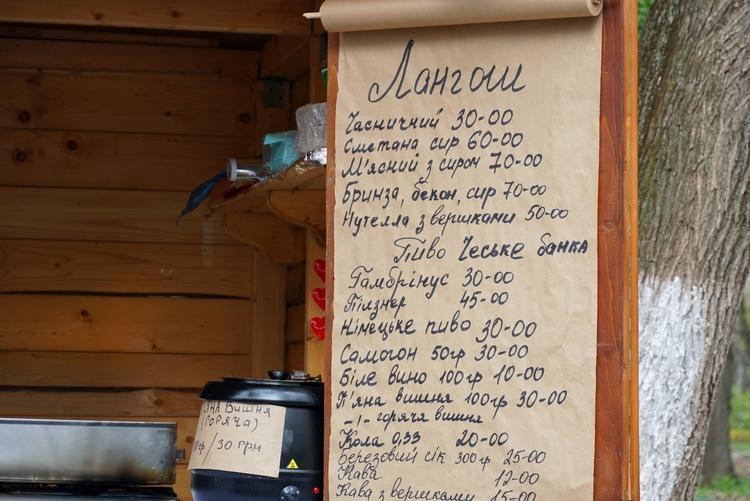 Лангош
Часничний 30-00
Сметана сир 60-00
М'ясний з сиром 70-00
Бринза, бекон, сир 70-00
Нутелла з вершками 50-00
Пиво Чеське банка
Гамбрінус 30-00
Пілзнер 45-00
Німецьке пиво 30-00
Самогон 50гр 30-00
Біле вино 100гр 10-00
П'яна вишня 100гр 30-00
-//- горяча вишня
Кола 0,33 20-00
Березовий сік 300гр 25-00
Кава 12-00
Кава з вершками 15-00
Вишня
(горяча)
/30 грн